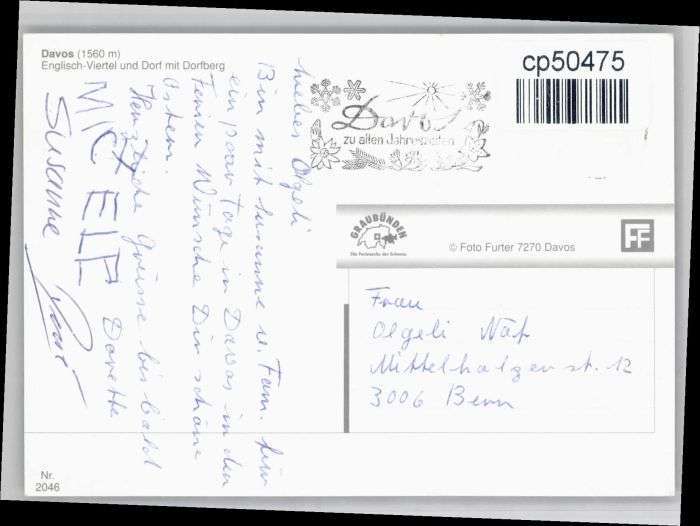 Davos (1560 m)
Englisch-Viertel und Dorf mit Dorfberg
cp50475
Davos
zu allen Jahreszeiten
GRAUBÜNDEN
Die Ferienecke der Schweiz
© Foto Furter 7270 Davos
FF
Liebes Olgeli
Bin mit Susanne u. Fam. für
ein paar Tage in Davos in den
Ferien Wünsche Dir schöne
Ostern.
Herzliche Grüsse bis bald
Davette
SUSANNE
Frau
Olgeli Näf
Mittelholzerstr. 12
3006 Bern
Nr.
2046